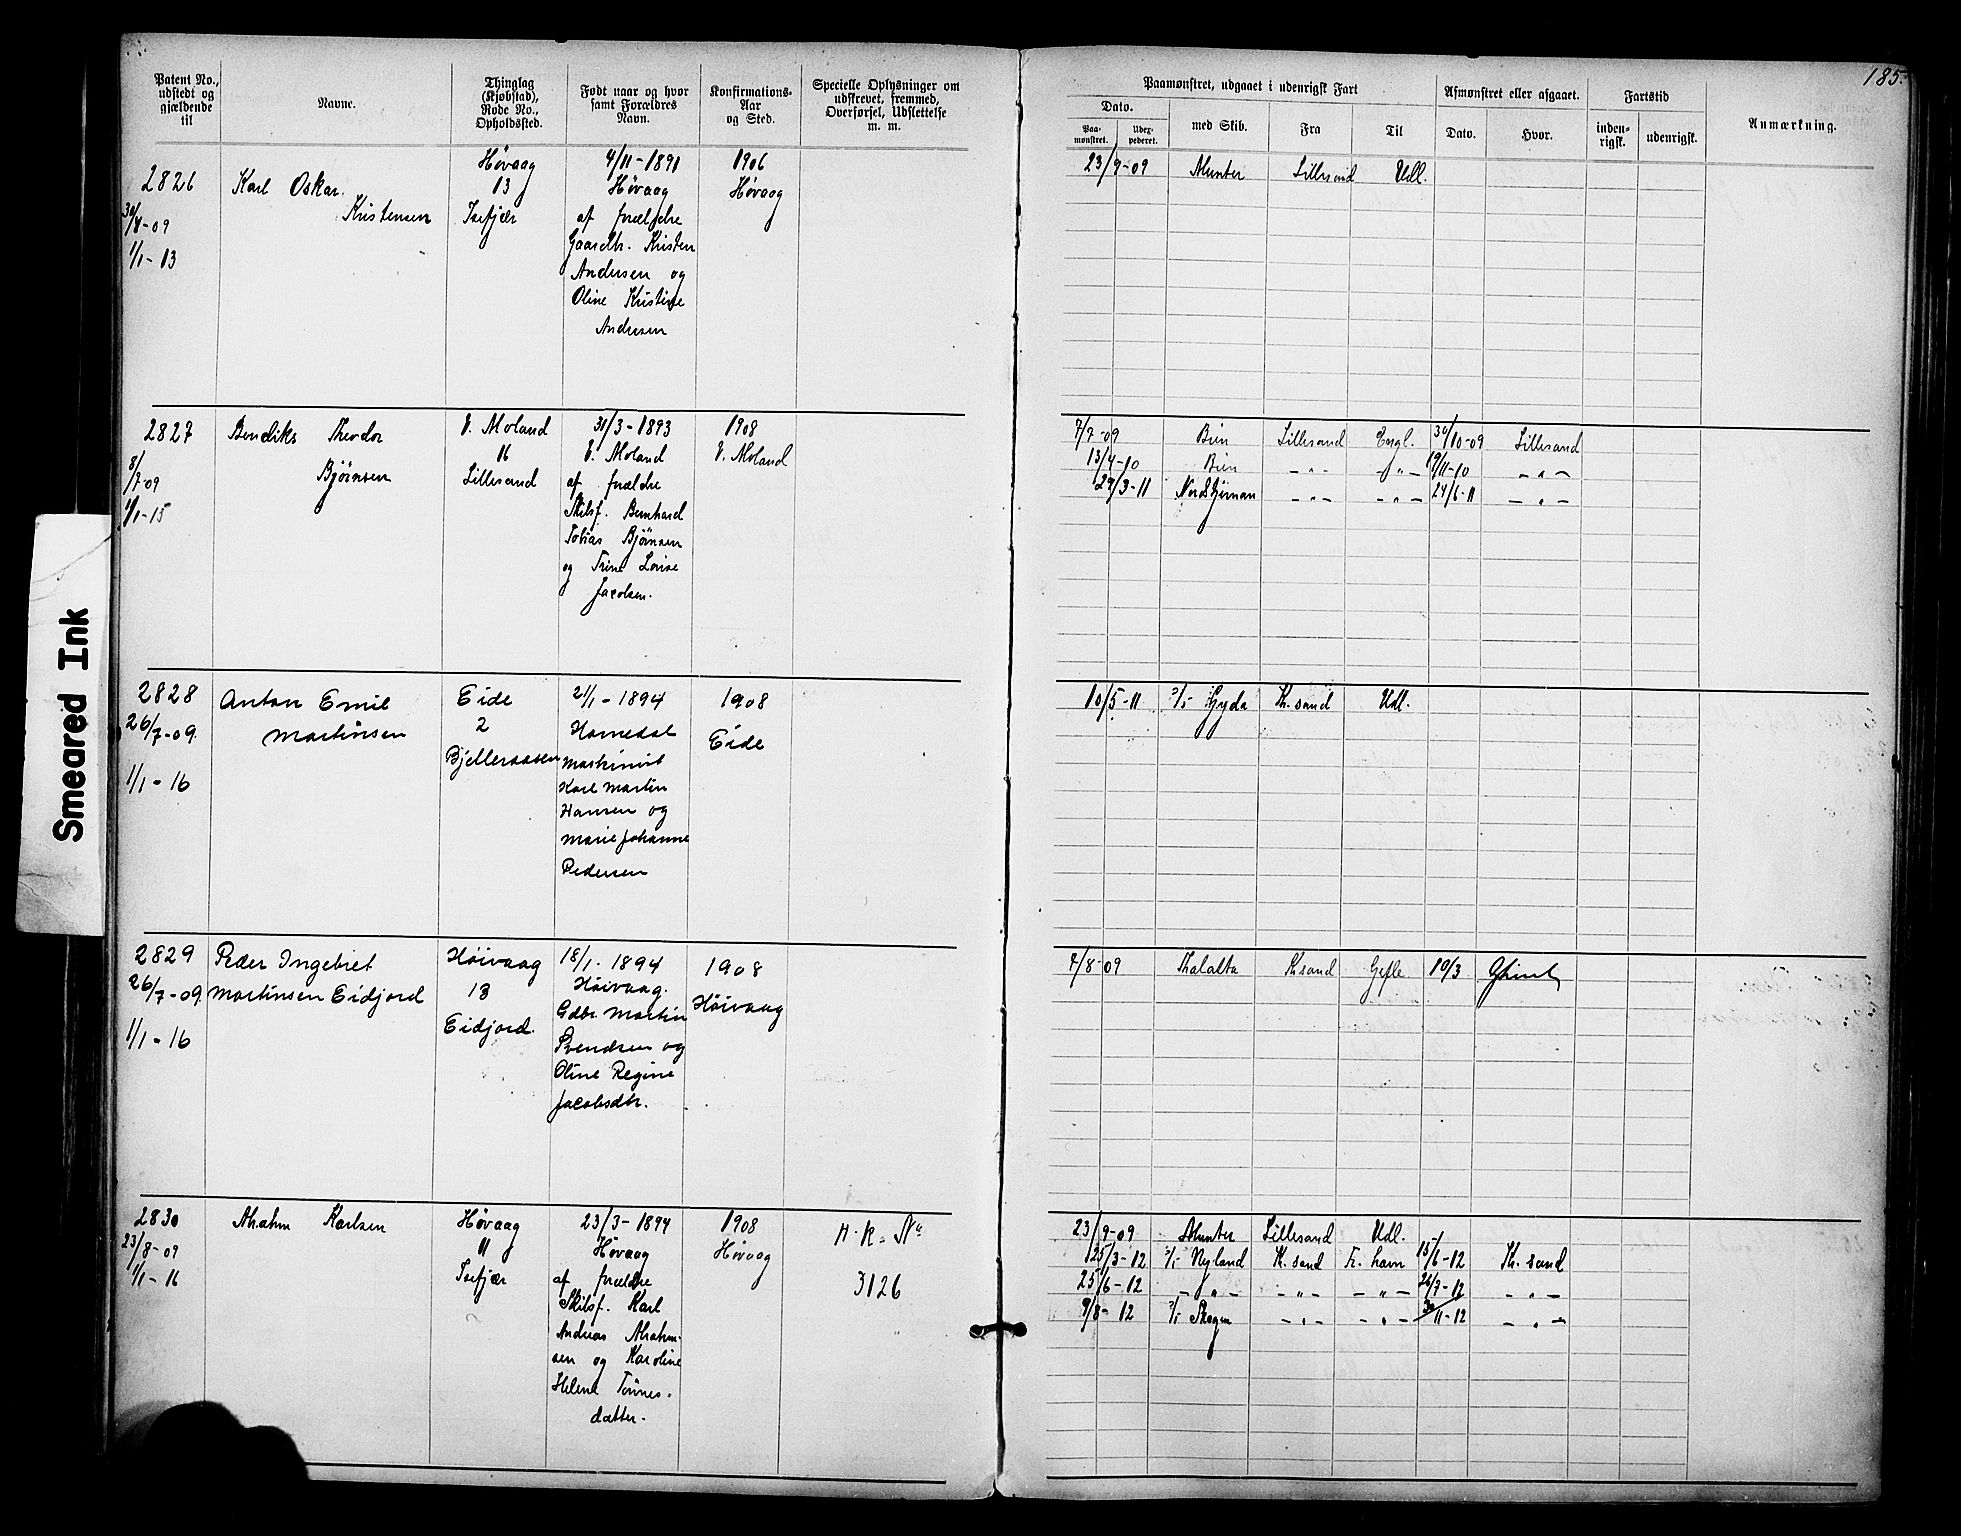 185.
Patent No., udstedt og gjældende til
Navne.
Thinglag (Kjøbstad), Rode No., Opholdssted.
Født naar og hvor samt Forældres Navn.
Konfirmations-Aar og Sted.
Specielle Oplysninger om udskrevet, fremmed, Overførsel, Udslettelse m. m.
Paamønstret, udgaaet i udenrigsk Fart
Dato.
Paa-mønstret.
Udex-pederet.
med Skib.
Fra
Til
Afmønstret eller afgaaet.
Dato.
Hvor.
Fartstid
inden-rigsk.
udenrigsk.
Anmærkning.
2826
30/8-09
1/1-13
Karl Oskar
Kristensen
Høvaag
13
Isefjær
4/11-1891
Høvaag
af forældre
Gaardbr. Kristen
Andersen og
Oline Kristine
Andersen
1906
Høvaag
23/9-09 Munter Lillesand Udl.
2827
8/7-09
1/1-15
Bendiks Theodor
Bjørnsen
V. Moland
16
Lillesand
31/3-1893
V. Moland
af forældre
Skibsf. Bernhard
Tobias Bjørnsen
og Trine Lovise
Jacobsen.
1908
V. Moland
7/7-09 Bien Lillesand Engl. 30/10-09 Lillesand
13/4-10 Bien -"- -"- 19/11-10 -"-
29/3-11 Nordstjernan -"- -"- 24/6-11 -"-
2828
26/7-09.
1/1-16
Anton Emil
Martinsen
Eide
2
Bjelleraasen
21/1-1894
Homedal
Maskinist
Karl Martin
Hansen og
Marie Johanne
Pedersen
1908
Eide
10/5-11 D/S Gyda Kr. sand Udl.
2829
26/7-09.
1/1-16
Peder Ingebret
Martinsen Eidjord
Höivaag
13
Eidjord.
18/1-1894
Höivaag.
Gdbr. Martin
Svendsen og
Oline Regine
Jacobsdtr.
1908
Höivaag
4/8-09 Thalatta Krsand Gefle 10/3
2830
23/8-09
1/1-16
Abrahm Karlsen
Høvaag
11
Isefjær
23/3-1894
Høvaag
af forældre
Skibsf. Karl
Andreas Abrahm-
sen og Karoline
Helene Tønnes-
datter.
1908
Høvaag
H. R. No
3126
23/9-09 Munter Lillesand Udl.
25/3-12 D/S Nyland Kr. sand Fr. havn 15/6-12 Kr. sand
25/6-12 -"- -"- -"- 26/7-12 -"-
9/8-12 D/S Skagen -"- -"- 30/11-12 -"-
Smeared Ink